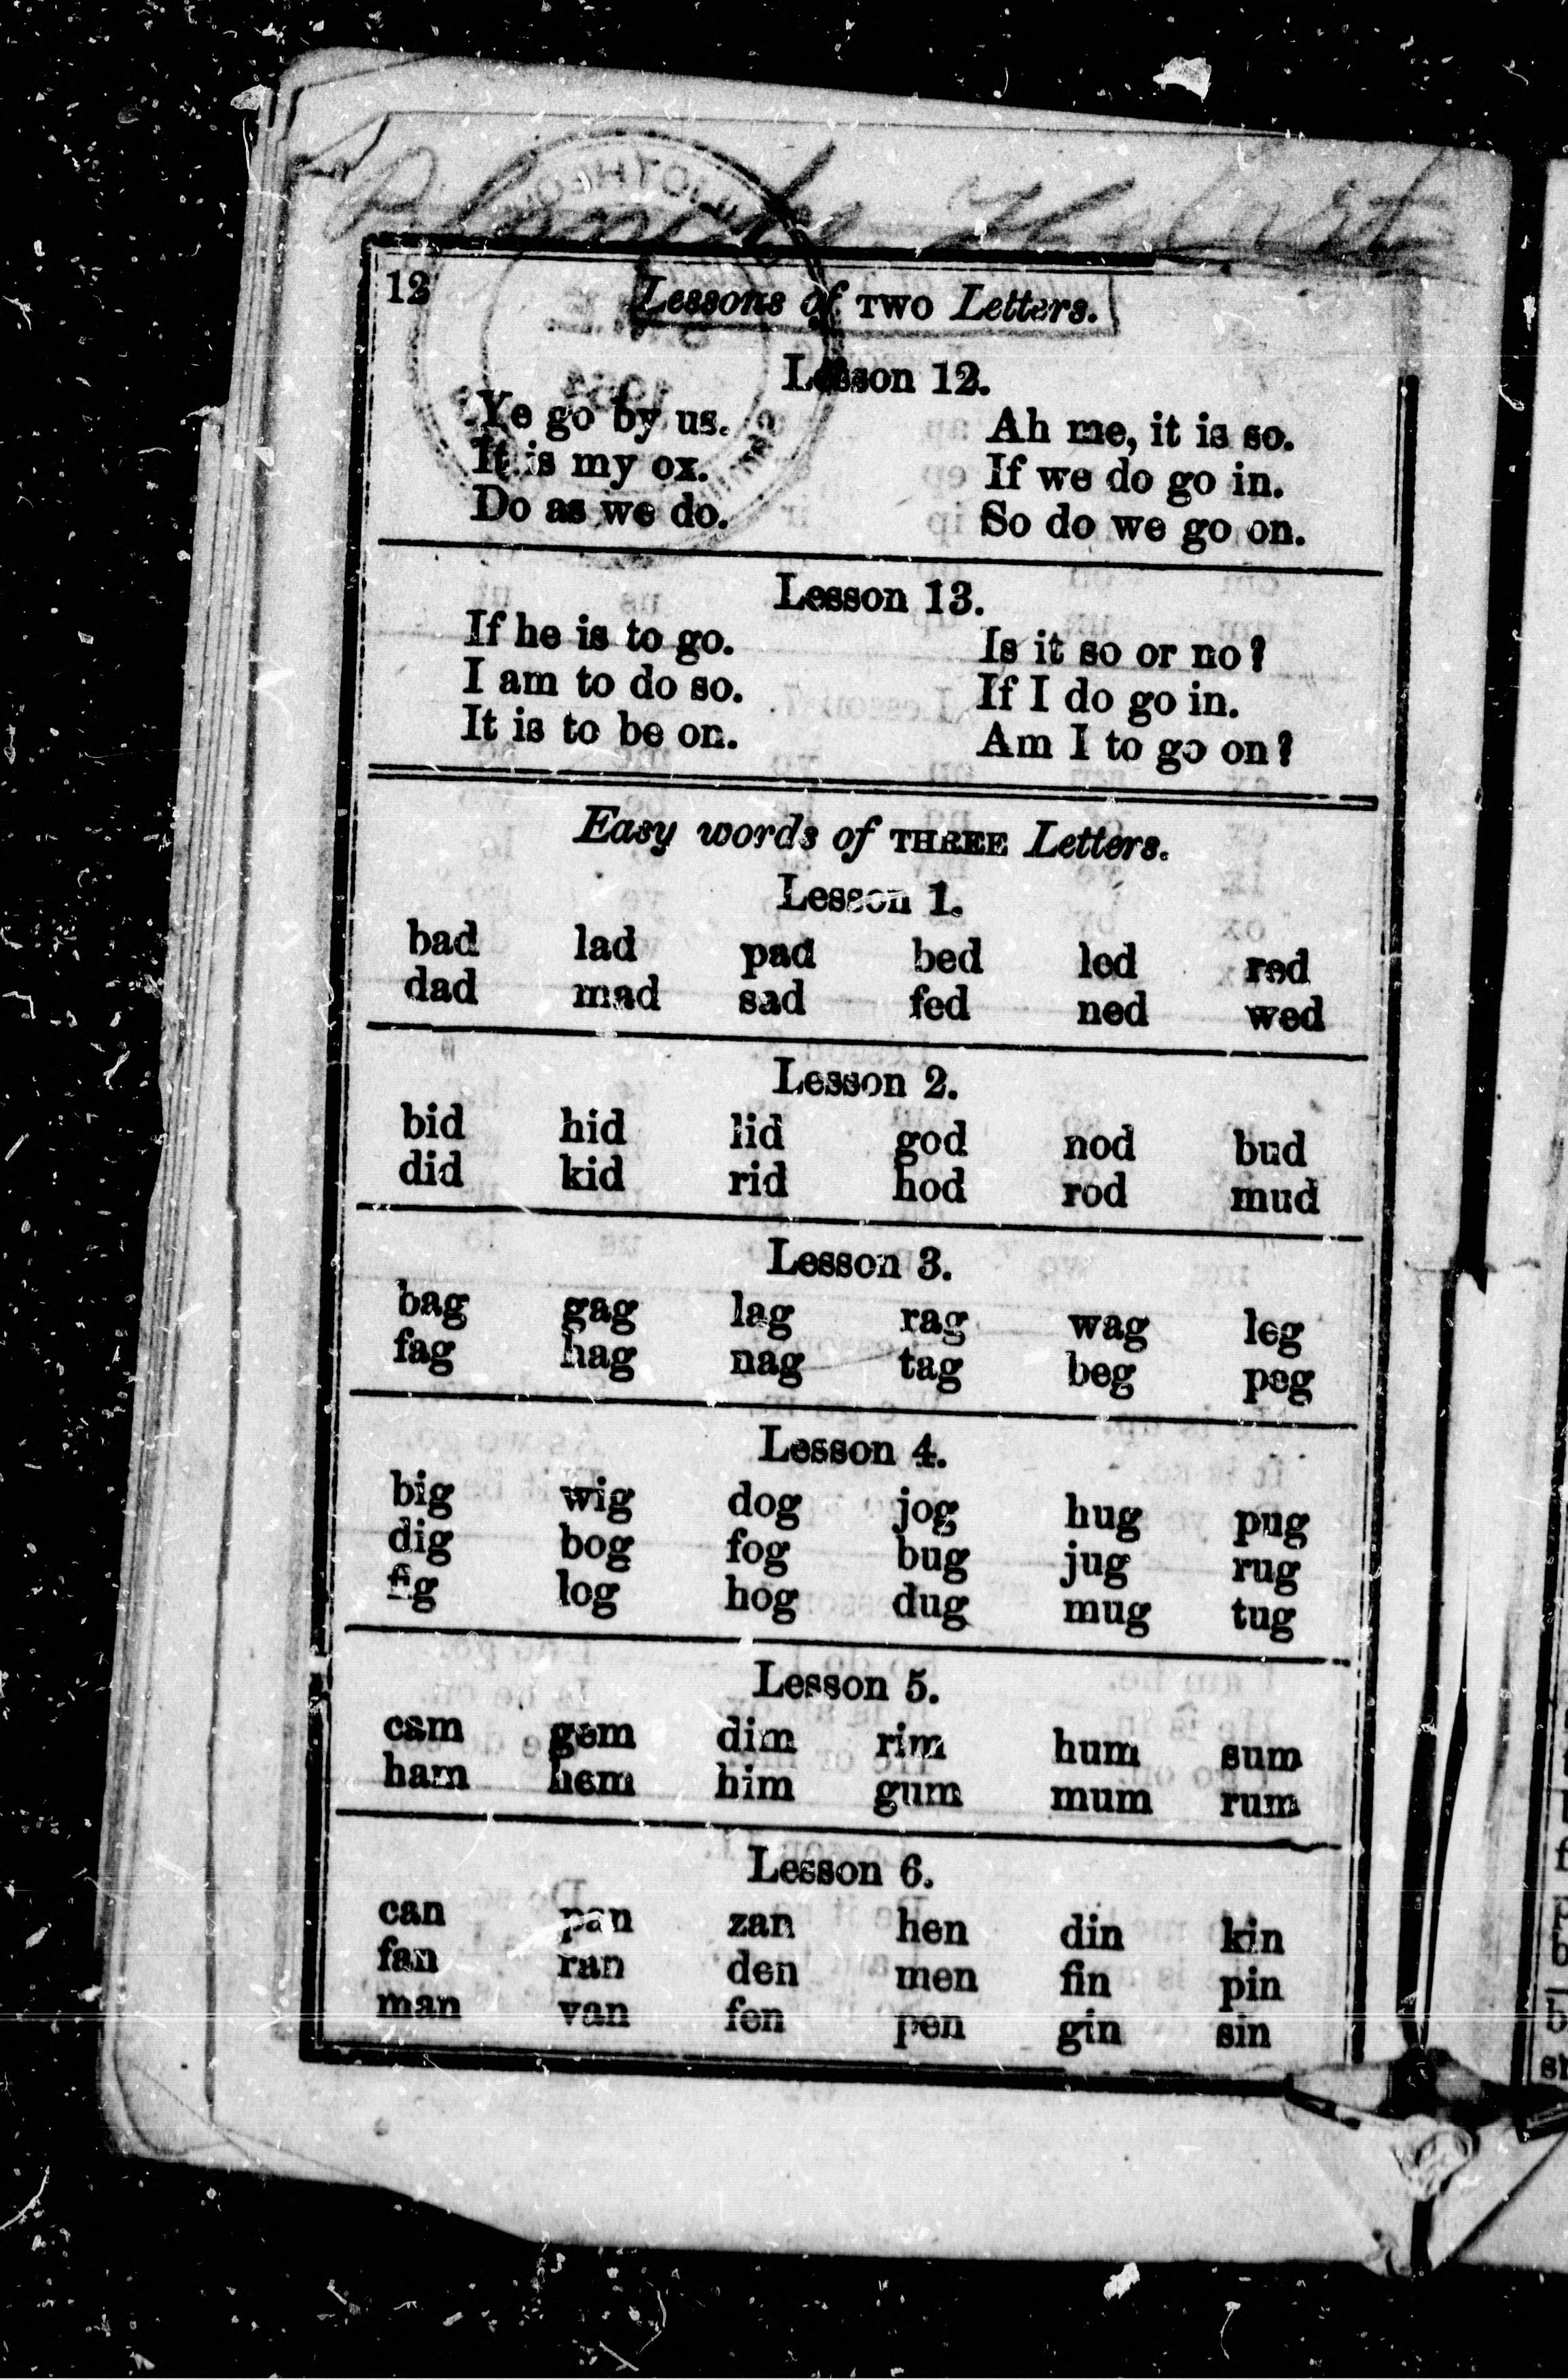 12 Lessons of TWO Letters.
Lesson 12.
Ye go by us. Ah me, it is so.
It is my ox. If we do go in.
Do as we do. So do we go on.
Lesson 13.
If he is to go. Is it so or no?
I am to do so. If I do go in.
It is to be on. Am I to go on?
Easy words of THREE Letters.
Lesson 1.
bad lad pad bed led red
dad mad sad fed ned wed
Lesson 2.
bid hid lid god nod bud
did kid rid hod rod mud
Lesson 3.
bag gag lag rag wag leg
fag hag nag tag beg peg
Lesson 4.
big wig dog jog hug pug
dig bog fog bug jug rug
fig log hog dug mug tug
Lesson 5.
cam gem dim rim hum sum
ham hem him gum mum rum
Lesson 6.
can pan zan hen din kin
fan ran den men fin pin
man van fen pen gin sin